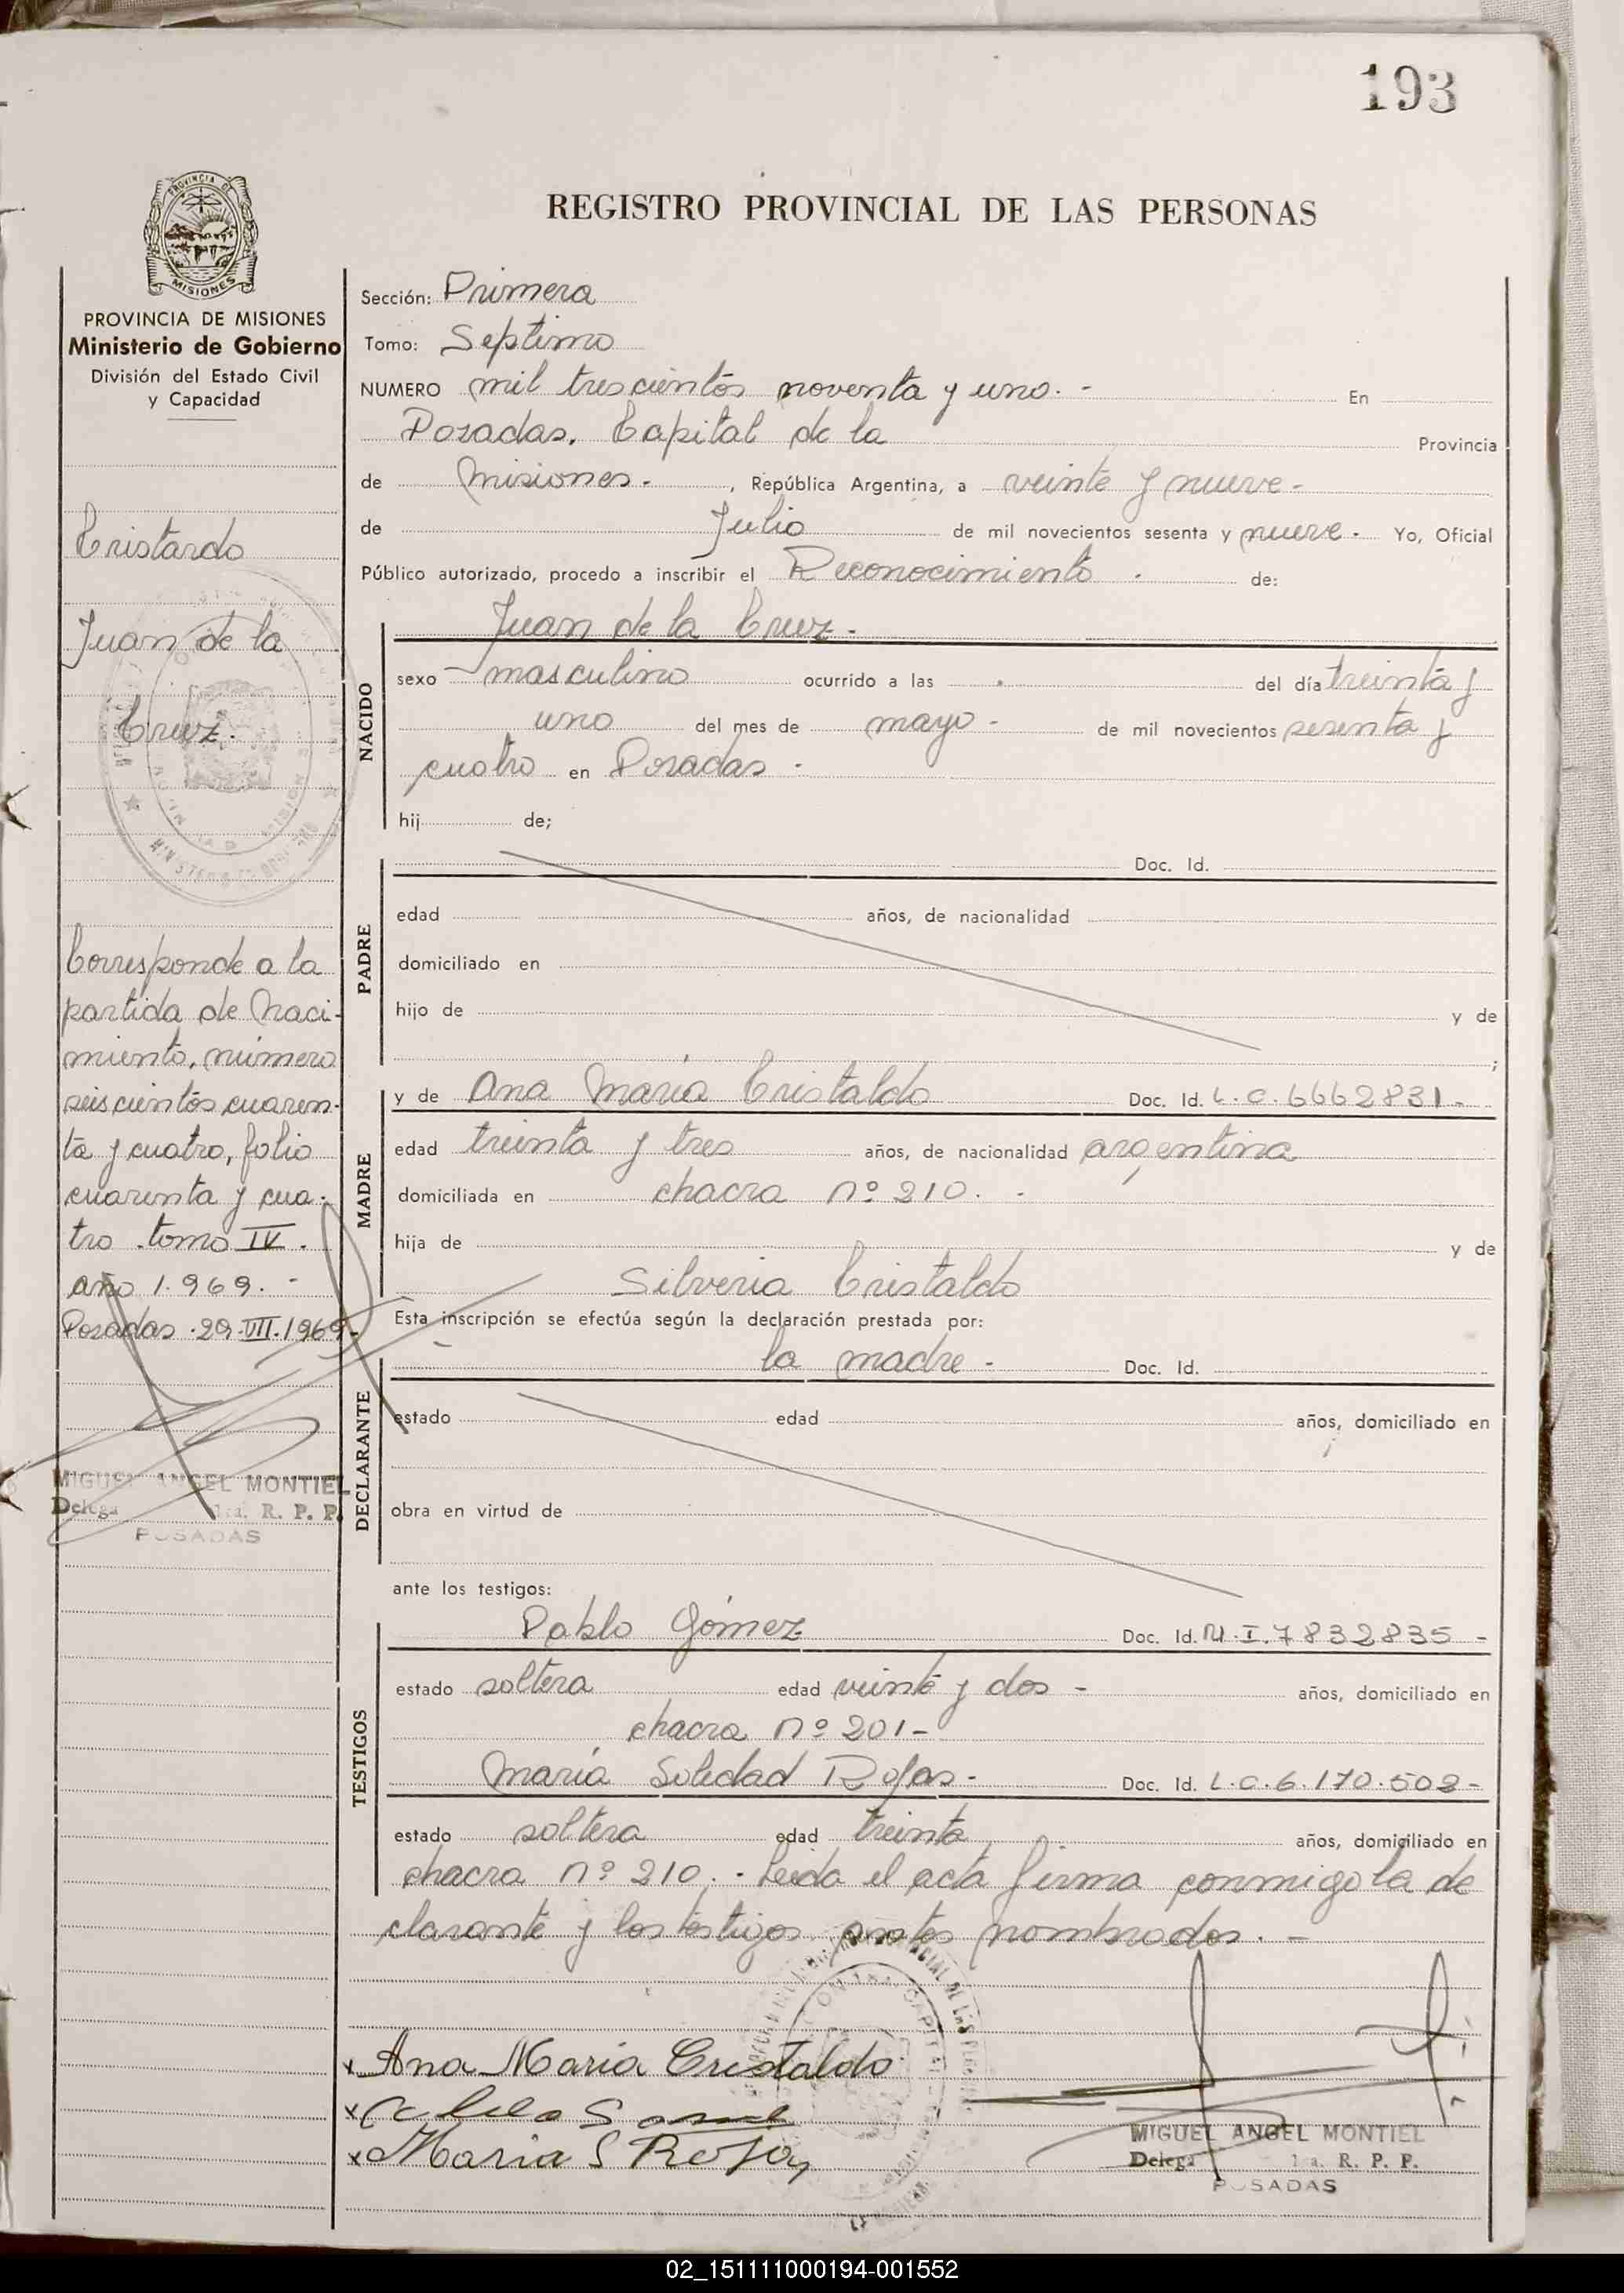 193
PROVINCIA DE
MISIONES
REGISTRO PROVINCIAL DE LAS PERSONAS
PROVINCIA DE MISIONES
Ministerio de Gobierno
División del Estado Civil
y Capacidad
Cristardo
Juan de la
Cruz.
Corresponde a la
partida de Naci-
miento, número
seiscientos cuaren-
ta y cuatro, folio
cuarenta y cua-
tro . tomo IV .
año 1.969. -
Posadas . 29. VII. 1969 -
MIGUEL ANGEL MONTIEL
Delega 1a. R. P. P.
POSADAS
Sección: Primera
Tomo: Septimo
NUMERO mil trescientos noventa y uno. - En
Posadas. Capital de la Provincia
de Misiones - , República Argentina, a veinte y nueve -
de Julio de mil novecientos sesenta y nueve - Yo, Oficial
Público autorizado, procedo a inscribir el Reconocimiento . de:
NACIDO
Juan de la Cruz -
sexo masculino ocurrido a las . del día treinta y
uno del mes de mayo - de mil novecientos sesenta y
cuatro en Posadas -
hij de;
PADRE
Doc. Id.
edad años, de nacionalidad
domiciliado en
hijo de y de
;
MADRE
y de Ana María Cristaldo Doc. Id. L.C. 6662831 -
edad treinta y tres años, de nacionalidad argentina
domiciliada en chacra nº 210. -
hija de y de
Silveria Cristaldo
Esta inscripción se efectúa según la declaración prestada por:
DECLARANTE
la madre - Doc. Id.
estado edad años, domiciliado en
obra en virtud de
ante los testigos:
TESTIGOS
Pablo Gómez Doc. Id. M.I. 7832835 -
estado soltera edad veinte y dos - años, domiciliado en
chacra nº 201-
María Soledad Rojas - Doc. Id. L.C. 6.170.502-
estado soltera edad treinta años, domiciliado en
chacra nº 210. - Leida el acta firma conmigo la de
clarante y los testigos antes nombrados. -
x Ana Maria Cristaldo
x
x Maria S Rojas
MIGUEL ANGEL MONTIEL
Delega 1a. R. P. P.
POSADAS
02_151111000194-001552